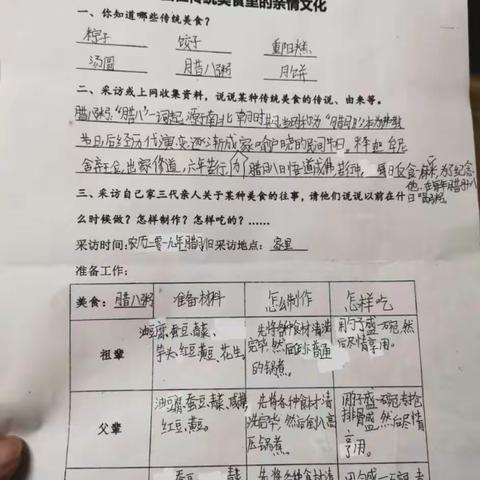 传统美食里的亲情文化
一、你知道哪些传统美食？
粽子 饺子 重阳糕
汤圆 腊八粥 月饼
二、采访或上网收集资料，说说某种传统美食的传说、由来等。
腊八粥："腊八"一词起源于南北朝时期,当时称为"腊日"本为佛教
节日后经历代演变逐渐成家喻户晓的民间节日。释迦牟尼
舍弃王位,出家修道,六年苦行,于腊月八日悟道成佛,苦行中,每日仅食一麻一米,为了纪念
他,在每年腊月八
日吃粥。
三、采访自己家三代亲人关于某种美食的往事，请他们说说以前在什
么时候做？怎样制作？怎样吃的？……
采访时间：农历二零一九年腊月 日 采访地点： 家里
准备工作：
美食：腊八粥 准备材料 怎么制作 怎样吃
祖辈
油豆腐、蚕豆、青菜、
芋头、红豆、黄豆、花生。
先将各种食材清洗
完毕,然后 普通
的锅煮。
用勺子盛一碗,然
后尽情享用。
父辈
油豆腐、蚕豆、青菜、咸肉、
红豆、黄豆。
先将各种食材清
洗完毕,然后倒入高
压锅煮。
用勺子盛一碗,
排骨 ,然后尽情
享用。
蚕豆、 青菜
先将各种食材清
用勺盛一碗,